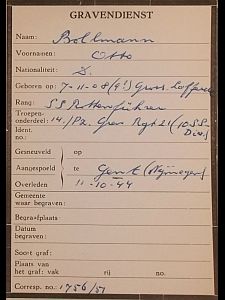 GRAVENDIENST
Naam: Bollmann
Voornamen: Otto
Nationaliteit: D.
Geboren op: 7-11-08 (9!)
Rang: SS Rottenführer
Troepen- 14./Pz. Gren Rgt 21 (10 SS-
onderdeel: Div)
Ident.
no.:
Gesneuveld op
Aangespoeld te Gent (Nijmegen)
Overleden 11-10-44
Gemeente
waar begraven:
Begraafplaats:
Datum
begraven:
Soort graf:
Plaats van
het graf: vak rij no.
Corresp. no.: 1756/51